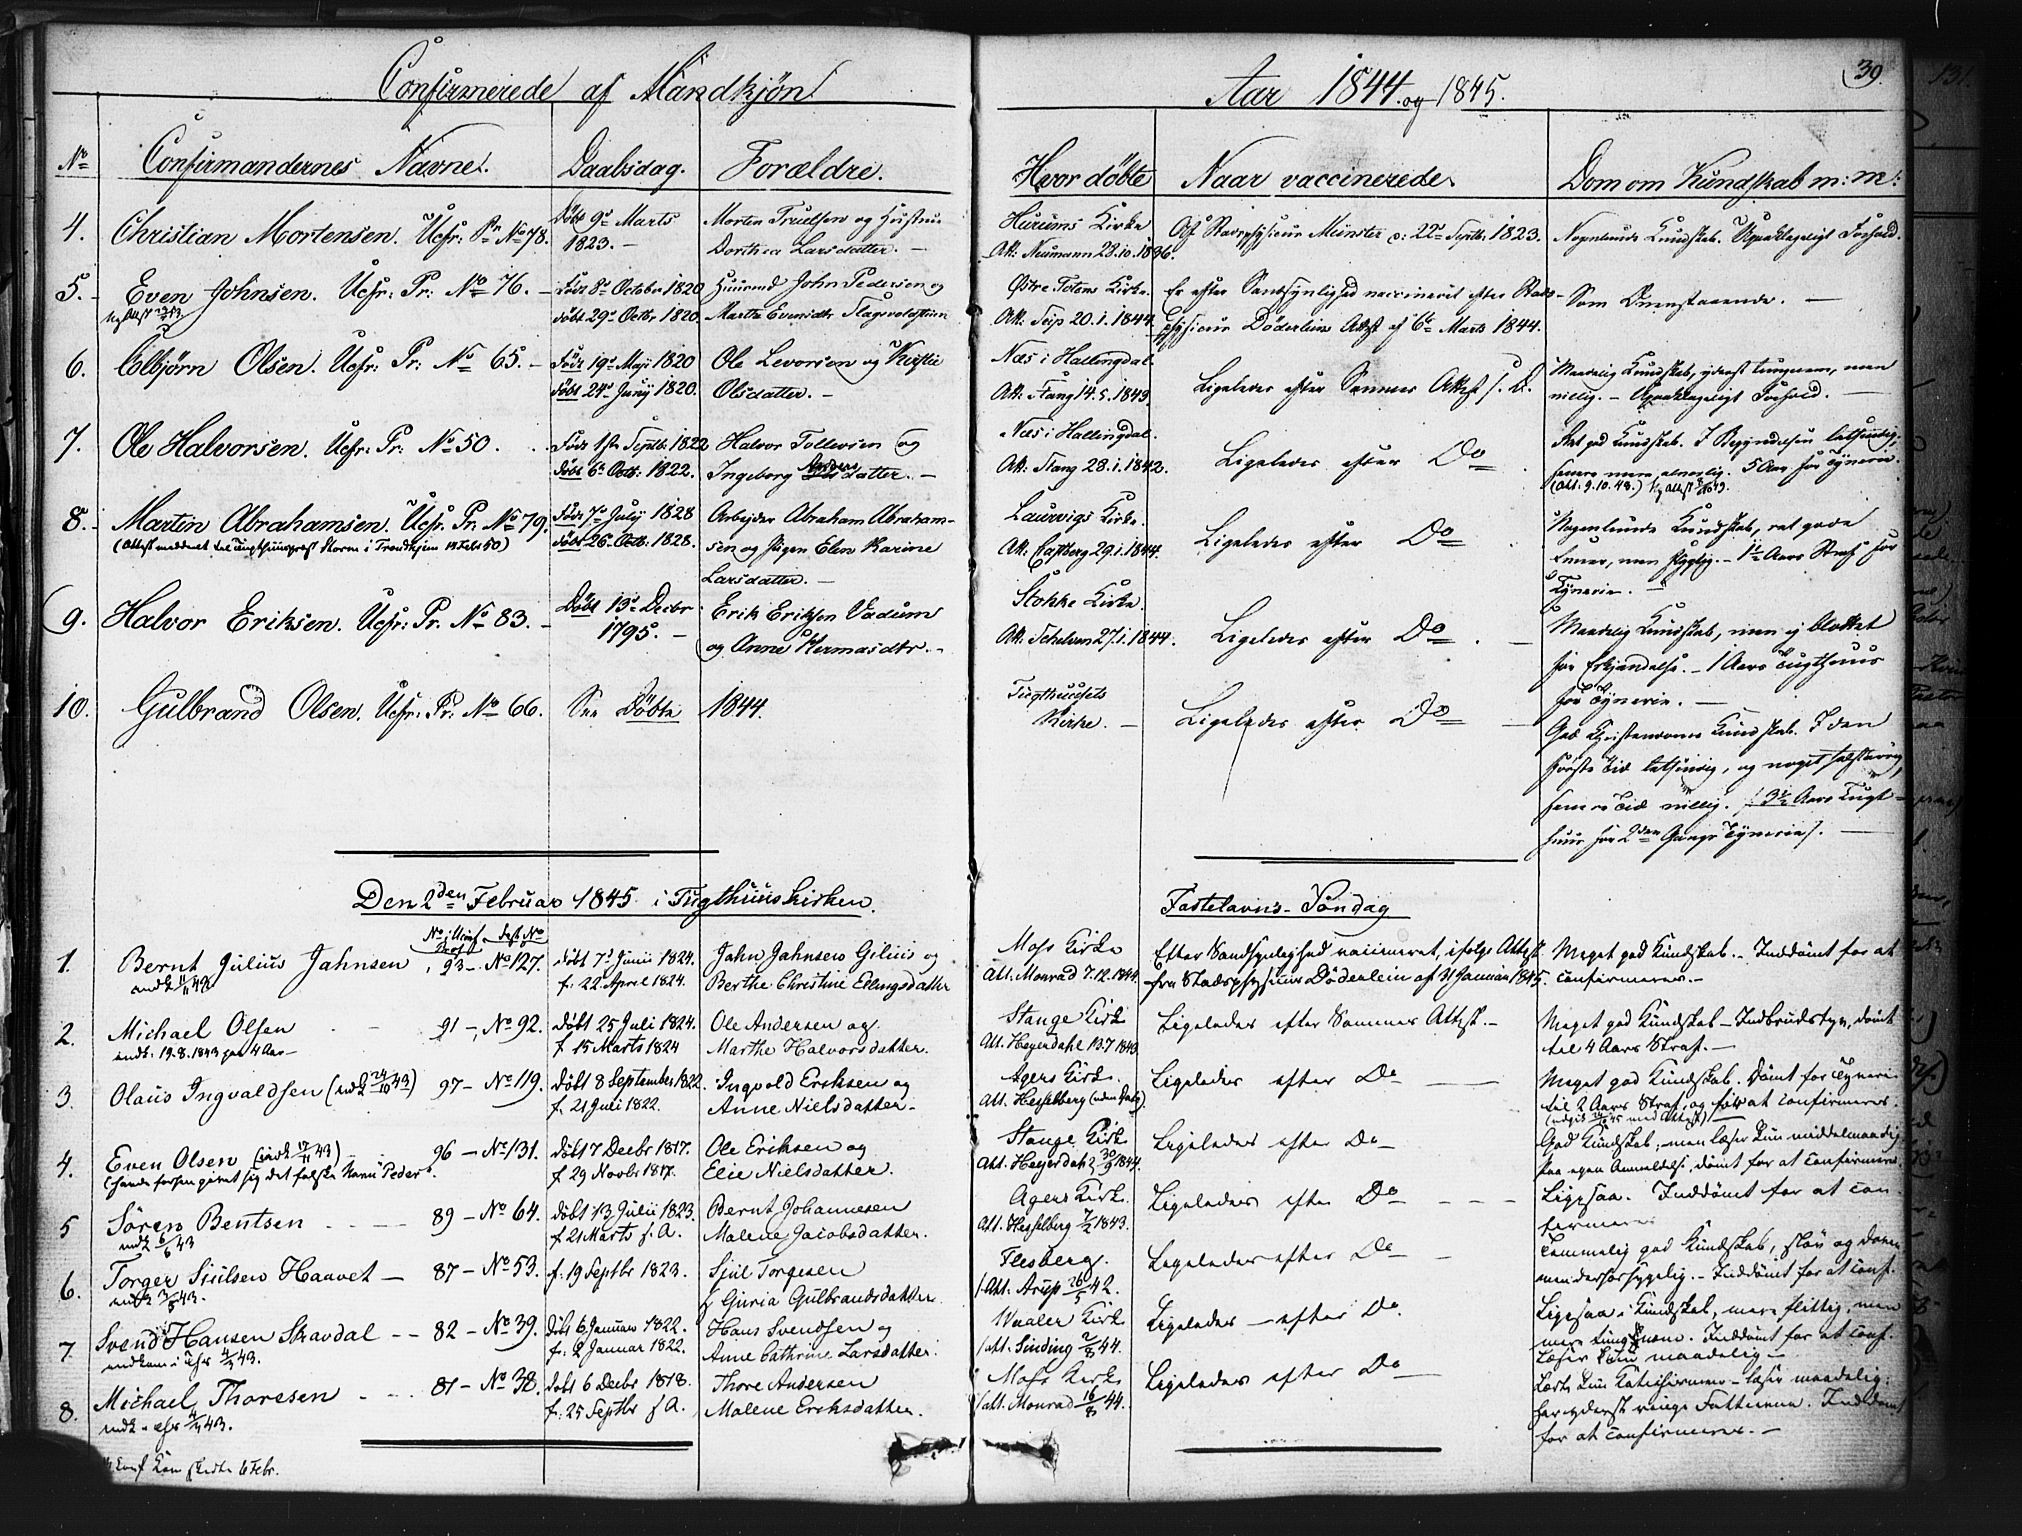 Confirmerede af Mandkjøn
Aar 1844 og 1845.
39.
131
No
Confirmandernes Navne.
Daabsdag.
Forældre.
Hvor döbte
Naar vaccinerede
Dom om Kundskab m: m:
4. Christian Mortensen. Ucfr: Pr No 78.
Döbt 9de Marts
1823. –
Morten Truelsen og Hustru
Dorthea Larsdatter. –
Hurums Kirke.
Att: Neumann 28.10.1836.
Af Stadsphysicus Münster d: 22de Septbr. 1823.
Nogenlunde Kundskab. Upaaklageligt Forhold.
5. Even Johnsen. Ucfr: Pr: No 76. –
Födt 8de October 1820
döbt 29de Octbr 1820.
Huusmd John Pedersen og
Marte Evensdtr
Østre Totens Kirke.
Att: 20.1.1844.
Er efter Sandsynlighed vaccineret efter Stads-
physicus Döderleins Attest af 6te Marts 1844.
Som Ovenstaaende. –
6. Olsen. Ucfr: Pr: No 65. –
Födt 19de Maji 1820
döbt 24de Junij 1820.
Ole Levorsen og Kristie
Olsdatter. –
Næs i Hallingdal.
Att: Stang 14.5.1843.
Ligeledes efter Sammes Attest s. D.
Maadelig Kundskab, yderst tungnem, men
villig. – Upaaklageligt Forhold. –
7. Ole Halvorsen. Ucfr: Pr: No 50.
Födt 1ste Septb: 1822
döbt 6te Octb: 1822.
Halvor Tollevsen og
Ingeborg datter. –
Næs i Hallingdal.
Att: Stang 28.1.1842.
Ligeledes efter Do
Ret god Kundskab. I Begyndelsen letsindig,
senere mere alvorlig. 5 Aar for Tyverie.
(Att. 9.10.48.)
8. Martin Abrahamsen. Ucfr: Pr: No 79.
(Attest meddeelt til Tugthuuspræst Storm i Trondhjem 14 Febr 50)
Födt 7de Julij 1828
döbt 26de Octb: 1828.
Arbejder Abraham Abraham-
sen og Pigen Elen Karine
Larsdatter. –
Laurvigs Kirke.
Att: 29.1.1844.
Ligeledes efter Do
Nogenlunde Kundskab, ret gode
Evner, men flygtig. – 1½ Aars Straf for
Tyverie. –
9. Halvor Eriksen. Ucfr: Pr. No 83. –
Döbt 13de Decbr
1795. –
Erik Eriksen Vadum
og Anne Hermasdtr. –
Stokke Kirke.
Att: 27.1.1844.
Ligeledes efter Do. –
Maadelig Kundskab, men ej blottet
for Erkjendelse. – 1 Aars Tugthuus
for Tyverie. –
10. Gulbrand Olsen. Ucfr: Pr: No 66.
See Döbte 1844.
Tugthuusets
Kirke. –
Ligeledes efter Do –
God Christendoms Kundskab. I den
förste Tid letsindig, og noget
senere Tid villig. (3½ Aars Tugt-
huus for 2den Gangs Tyverie). –
Den 2den Februar 1845 i Tugthuuskirken.
Fastelavns-Söndag
1. Bernt Julius Jahnsen 93 – No 127.
döbt 7de Junii 1824.
f: 22 April 1824.
Jahn Jahnsen Gilius og
Berthe Christine Ellingsdatter
Moss Kirke
Att: Monrad 7.12.1844.
Efter Sandsynlighed vaccineret, ifölge Attest
fra Stadsphysicus Döderlein af 31 Januar 1845.
Meget god Kundskab. – Inddömt for at
confirmeres. –
2. Michael Olsen 91 – No 92.
indk: 19.8.1843 paa 4 Aar –
döbt 25 Juli 1824.
f. 15 Marts 1824
Ole Andersen og
Marthe Halvorsdatter.
Stange Kirke
Att. Heyerdahl 13.7.1843.
Ligeledes efter Sammes Attest. –
Meget god Kundskab – Indbrudstyv, dömt
til 4 Aars Straf. –
3. Olaus Ingvaldsen (indk 24/10 43) 97 – No 119.
döbt 8 September 1822.
f. 21 Juli 1822.
Ingvold Eriksen og
Anne Nielsdatter –
Agers Kirke.
Att. Hesselberg (uden Dato).
Ligeledes efter Do –
Meget god Kundskab. Dömt for Tyverie
til 2 Aars Straf, og for at confirmeres.
4. Even Olsen (indk 17/11 43) 96 – No 131.
(havde forhen givet sig det falske Navn Peder.
döbt 7 Decbr 1817.
f. 29 Novbr 1817.
Ole Eriksen og
Elie Nielsdatter.
Stange Kirke
Att. Heyerdahl 30/9 1844.
Ligeledes efter Do –
God Kundskab, men læser kun middelmaadig
paa egen Anmeldelse, dömt for at confirmeres.
5 Sören Bentsen 89 – No 64.
indk 6/6 43
döbt 13 Julii 1823.
f 21 Marts s. A.
Bernt Johannesen
Malene Jacobsdatter.
Agers Kirke.
Att. Hesselberg 7/2 1843.
Ligeledes efter Do –
Ligesaa. Inddömt for at con-
firmeres
6. Torger Siulsen Haavet – 87 – No 53.
indk 3/5 43.
f. 19 Septbr 1823.
Sjul Torgesen
& Guria Gulbrandsdatter
Flesberg.
Att. Arup 26/5 42.
Ligeledes efter Do –
Temmelig god Kundskab, slöv og doven
Inddömt for at conf.
7. Svend Hansen Stavdal – – 82 – No 39.
indkom i 43.
döbt 6 Januar 1822.
f: 2 Januar 1822.
Hans Svendsen og
Anne Cathrine Larsdatter
Vaaler Kirke
att. Sinding 2/8 44.
Ligeledes – efter Do.
Ligesaa i Kundskab, mere flittig, men
mere tungnem. Inddömt for at conf.
Læser kun maadelig –
8. Michael Thoresen – 81 – No 38.
indk 43.
döbt 6 Decbr 1818.
f: 25 Septbr s A.
Thore Andersen
Malene Eriksdatter.
Moss Kirke
att. Monrad 16/8 44.
Ligeledes efter Do
Lært kun Katechismen – læser maadelig.
Har yderst ringe Fatteevne. Inddömt
for at confirmeres. –
6 Febr.